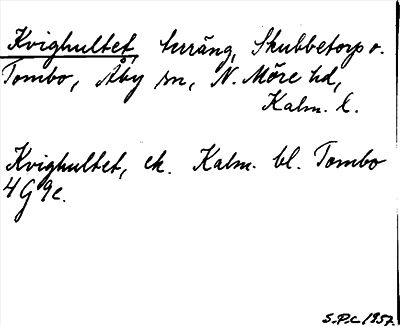 Kvighultet, turräng, Skubbetorp o.
Tombo, Åby sn, N. Möre hd,
Kalm. l.
Kvighultet, ek. Kalm. bl. Tombo
4G 9c.
S.P.C. 1957.